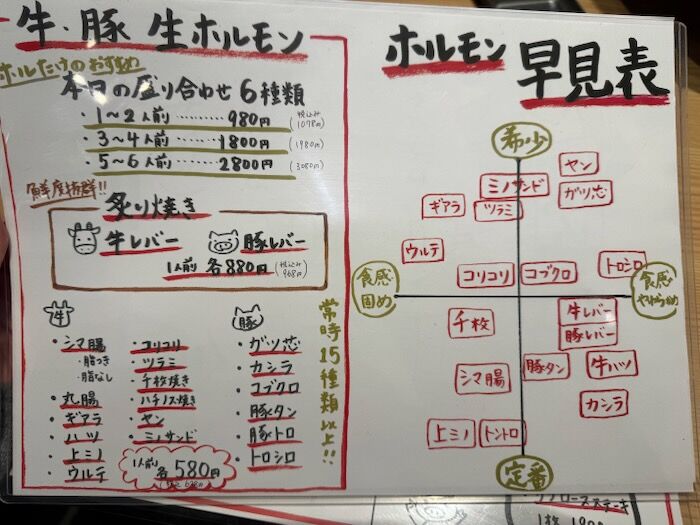 牛・豚 生ホルモン
ホルたけのおすすめ
本日の盛り合わせ 6種類
・1〜2人前………980円 (税込み 1078円)
・3〜4人前………1800円 (1980円)
・5〜6人前………2800円 (3080円)
鮮度抜群!!
炙り焼き
牛レバー 豚レバー
1人前 各880円 (税込み 968円)
牛
・シマ腸
・脂つき
・脂なし
・丸腸
・ギアラ
・ハツ
・上ミノ
・ウルテ
・コリコリ
・ツラミ
・千枚焼き
・ハチノス焼き
・ヤン
・ミノサンド
豚
・ガツ芯
・カシラ
・コブクロ
・豚タン
・豚トロ
・トロシロ
1人前 各580円
常時15種類以上!!
ホルモン 早見表
希少
ヤン
ミノサンド
ガツ芯
ギアラ
ツラミ
ウルテ
コリコリ
コブクロ
トロシロ
食感固め
食感やわらかめ
千枚
牛レバー
豚レバー
シマ腸
豚タン
牛ハツ
カシラ
上ミノ
トントロ
定番